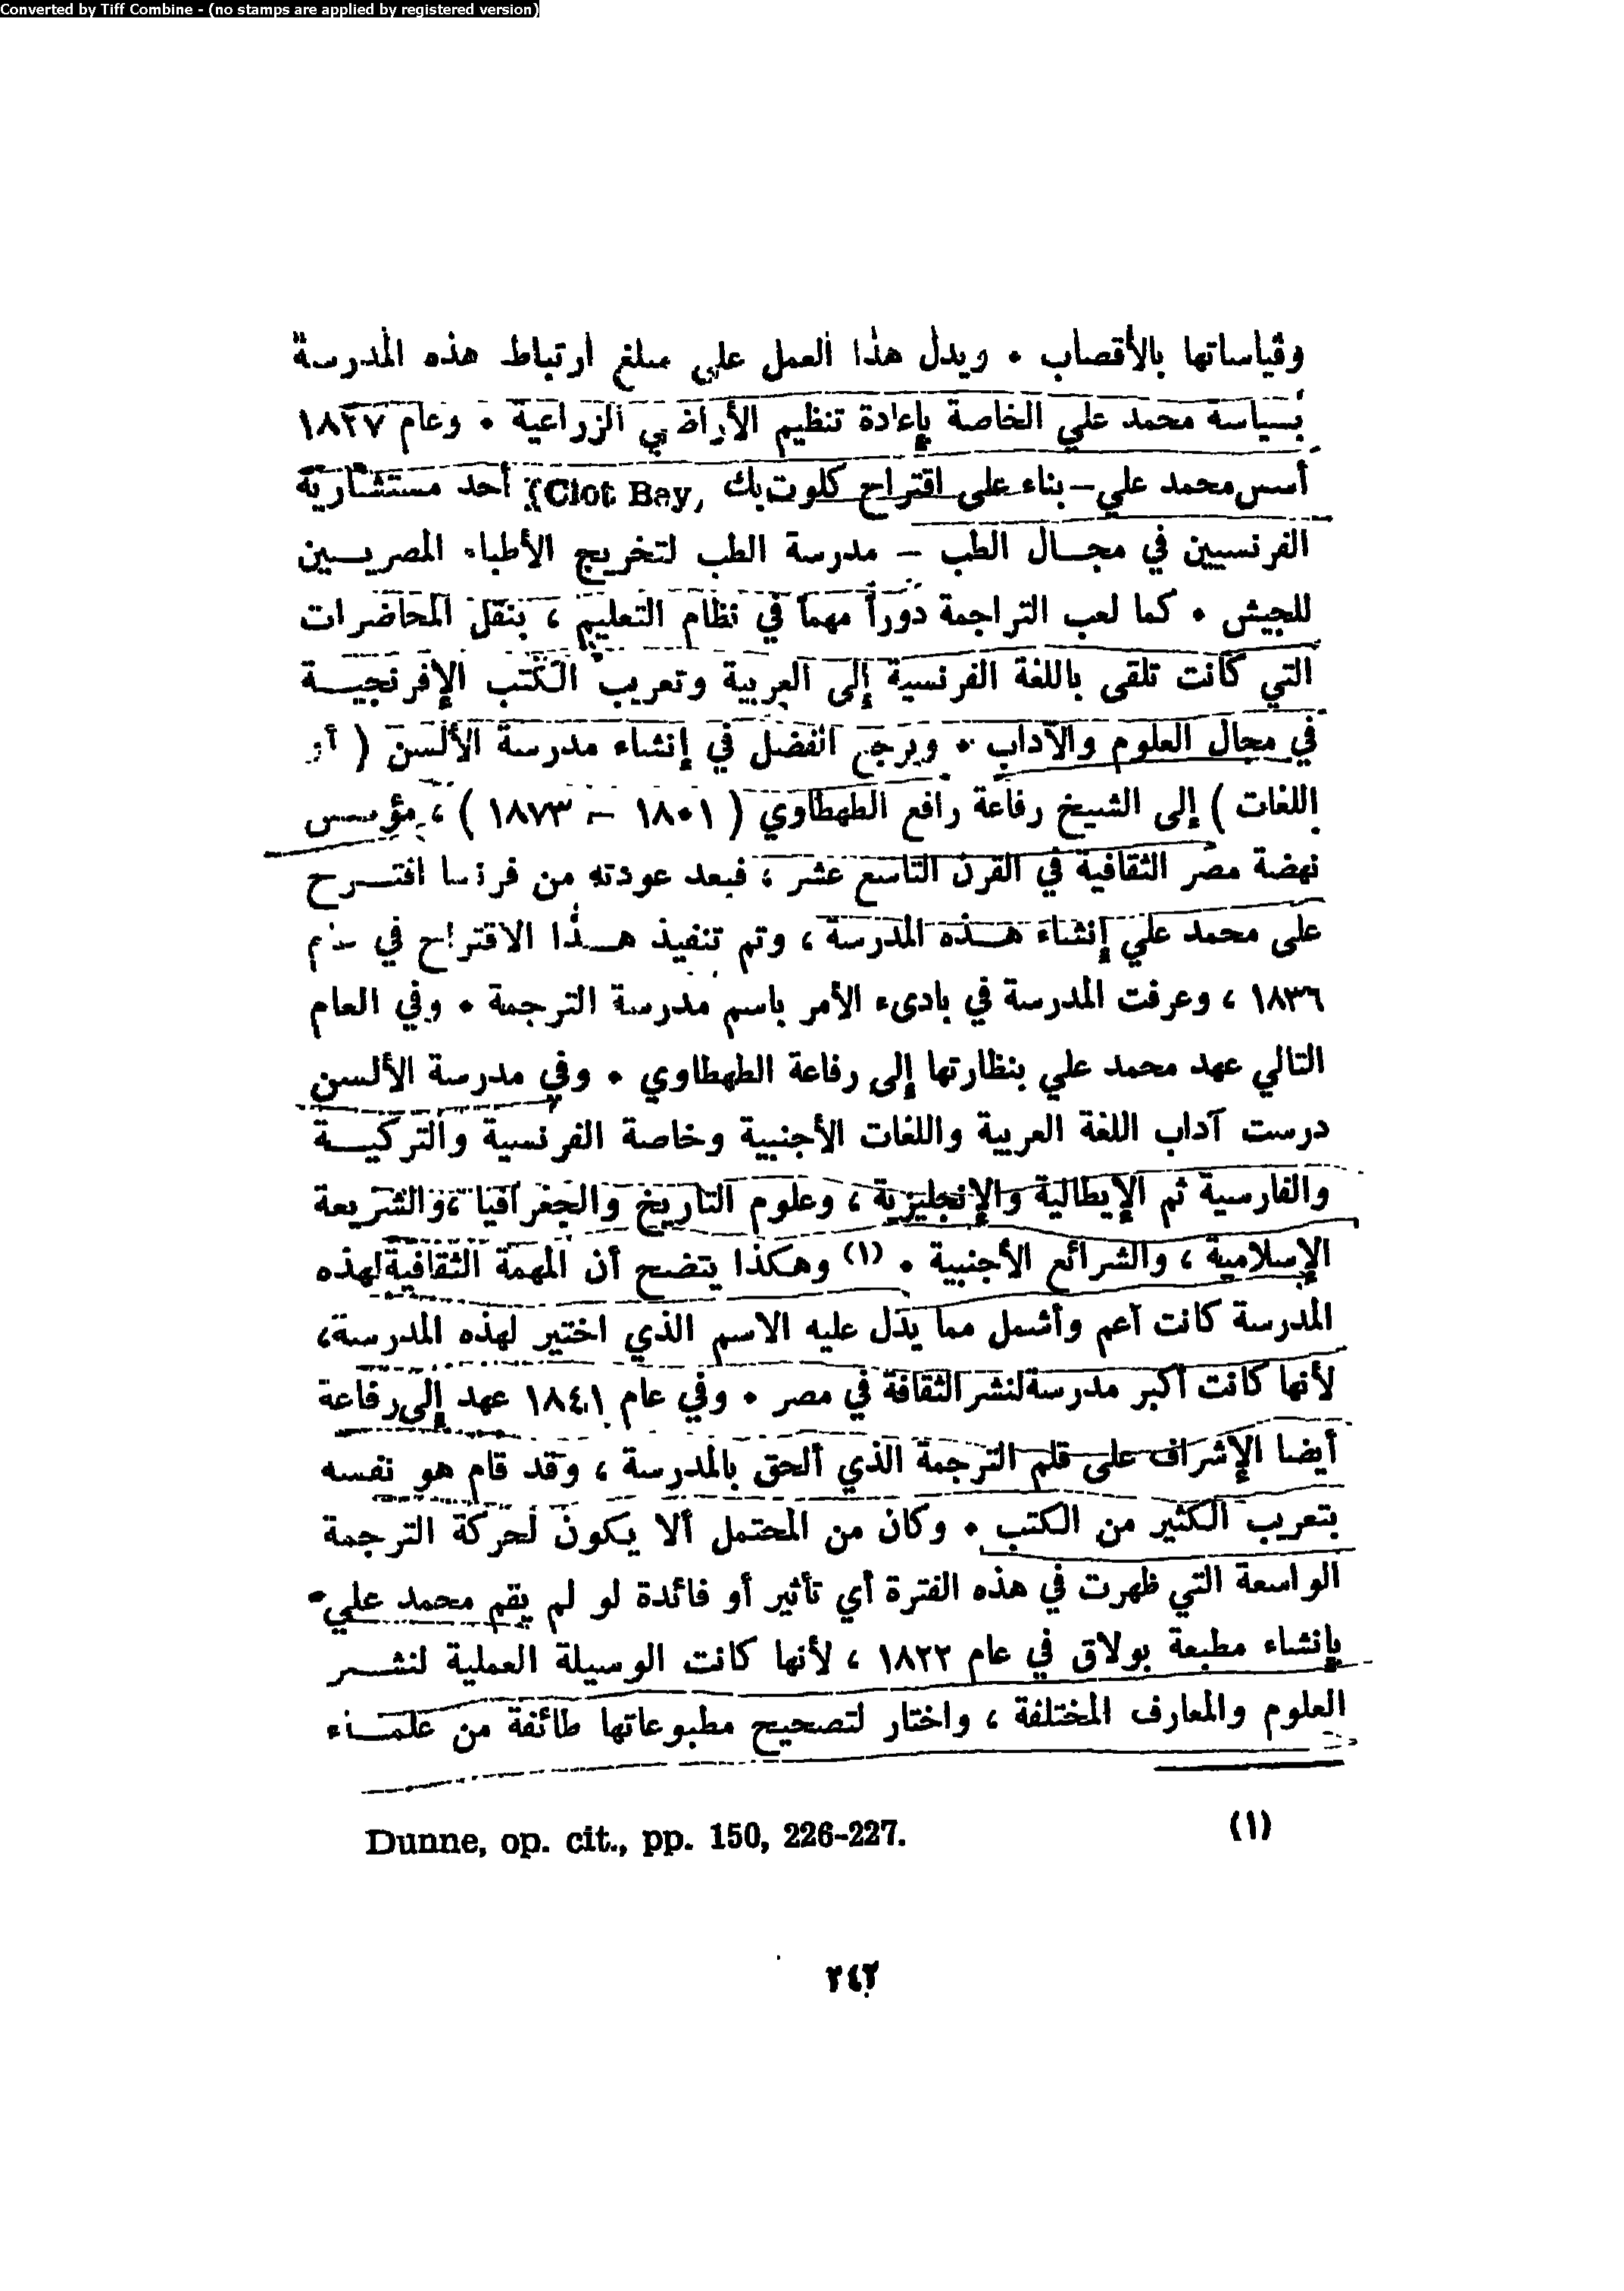 Converted by Tiff Combine - (no stamps are applied by registered version)
وقياساتها بالأقصاب . ويدل هذا العمل على مبلغ ارتباط هذه المدرسة
بسياسة محمد علي الخاصة بإعادة تنظيم الأراضي الزراعية . وعام ١٨٢٧
أسس محمد علي – بناء على اقتراح كلوت بك (Clot Bey) أحد مستشارية
الفرنسيين في مجال الطب – مدرسة الطب لتخريج الأطباء المصريين
للجيش . كما لعب التراجمة دوراً مهماً في نظام التعليم ، بنقل المحاضرات
التي كانت تلقى باللغة الفرنسية إلى العربية وتعريب الكتب الإفرنجية
في مجال العلوم والآداب . ويرجع الفضل في إنشاء مدرسة الألسن ( أو
اللغات ) إلى الشيخ رفاعة رافع الطهطاوي ( ١٨٠١ – ١٨٧٣ ) ، مؤسس
نهضة مصر الثقافية في القرن التاسع عشر ، فبعد عودته من فرنسا اقترح
على محمد علي إنشاء هذه المدرسة ، وتم تنفيذ هذا الاقتراح في عام
١٨٣٦ ، وعرفت المدرسة في بادىء الأمر باسم مدرسة الترجمة . وفي العام
التالي عهد محمد علي بنظارتها إلى رفاعة الطهطاوي . وفي مدرسة الألسن
درست آداب اللغة العربية واللغات الأجنبية وخاصة الفرنسية والتركية
والفارسية ثم الإيطالية والإنجليزية ، وعلوم التاريخ والجغرافيا ، والشريعة
الإسلامية ، والشرائع الأجنبية . (١) وهكذا يتضح أن المهمة الثقافية لهذه
المدرسة كانت أعم وأشمل مما يدل عليه الاسم الذي اختير لهذه المدرسة،
لأنها كانت أكبر مدرسة لنشر الثقافة في مصر . وفي عام ١٨٤١ عهد إلى رفاعة
أيضا الإشراف على قلم الترجمة الذي ألحق بالمدرسة ، وقد قام هو نفسه
بتعريب الكثير من الكتب . وكان من المحتمل ألا يكون لحركة الترجمة
الواسعة التي ظهرت في هذه الفترة أي تأثير أو فائدة لو لم يقم محمد علي
بإنشاء مطبعة بولاق في عام ١٨٢٢ ، لأنها كانت الوسيلة العملية لنشر
العلوم والمعارف المختلفة ، واختار لتصحيح مطبوعاتها طائفة من علماء
(١) Dunne, op. cit., pp. 150, 226-227.
٢٤٢